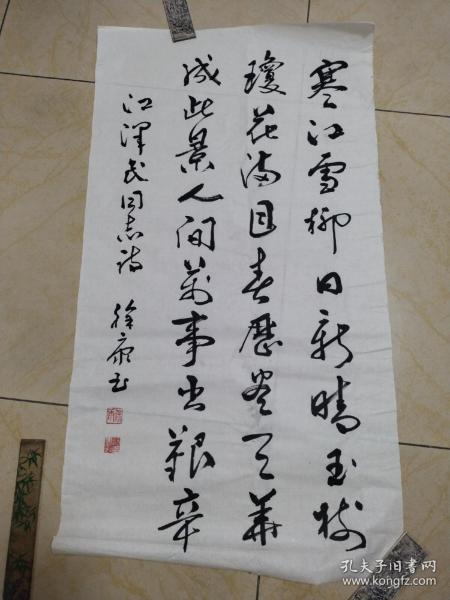 寒江雪柳日新晴玉树
瓊花满目春歷尽天華
成此景人间萬事出艱辛
江泽民同志诗 徐康
孔夫子旧书网
www.kongfz.com